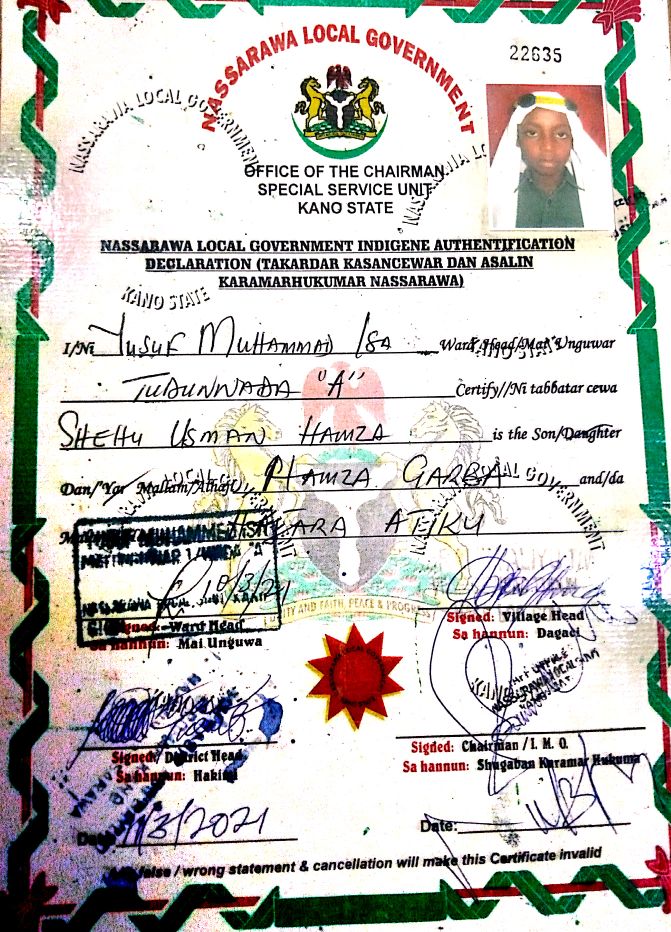 22635
NASSARAWA LOCAL GOVERNMENT
NASSARAWA LOCAL GOVERNMENT
OFFICE OF THE CHAIRMAN
SPECIAL SERVICE UNIT
KANO STATE
NASSARAWA LOCAL GOVERNMENT INDIGENE AUTHENTIFICATION
DECLARATION (TAKARDAR KASANCEWAR DAN ASALIN
KARAMARHUKUMAR NASSARAWA)
KANO STATE
I/Ni Yusuf Muhammad Isa Ward Head/Mai Unguwar
TUDUNWADA "A" Certify//Ni tabbatar cewa
SHEHU USMAN HAMZA is the Son/Daughter
Dan/'Yar Mallam/Alhaji HAMZA GARBA and/da
HAJARA ATIKU
UNITY AND FAITH, PEACE & PROGRESS
10/3/21
Signed: Ward Head
Sa hannun: Mai Unguwa
Signed: Village Head
Sa hannun: Dagaci
NASSARAWA LOCAL GOVERNMENT
Signed: District Head
Sa hannun: Hakimi
Signed: Chairman / I. M. O.
Sa hannun: Shugaban Karamar Hukuma
Date: /3/2021
Date:
false / wrong statement & cancellation will make this Certificate invalid